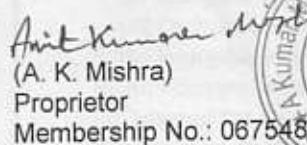 Amit Kumar Mish
(A. K. Mishra)
Proprietor
Membership No.: 067548
A Kuma